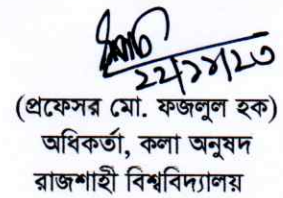 ২২/১১/২৩
(প্রফেসর মো. ফজলুল হক)
অধিকর্তা, কলা অনুষদ
রাজশাহী বিশ্ববিদ্যালয়